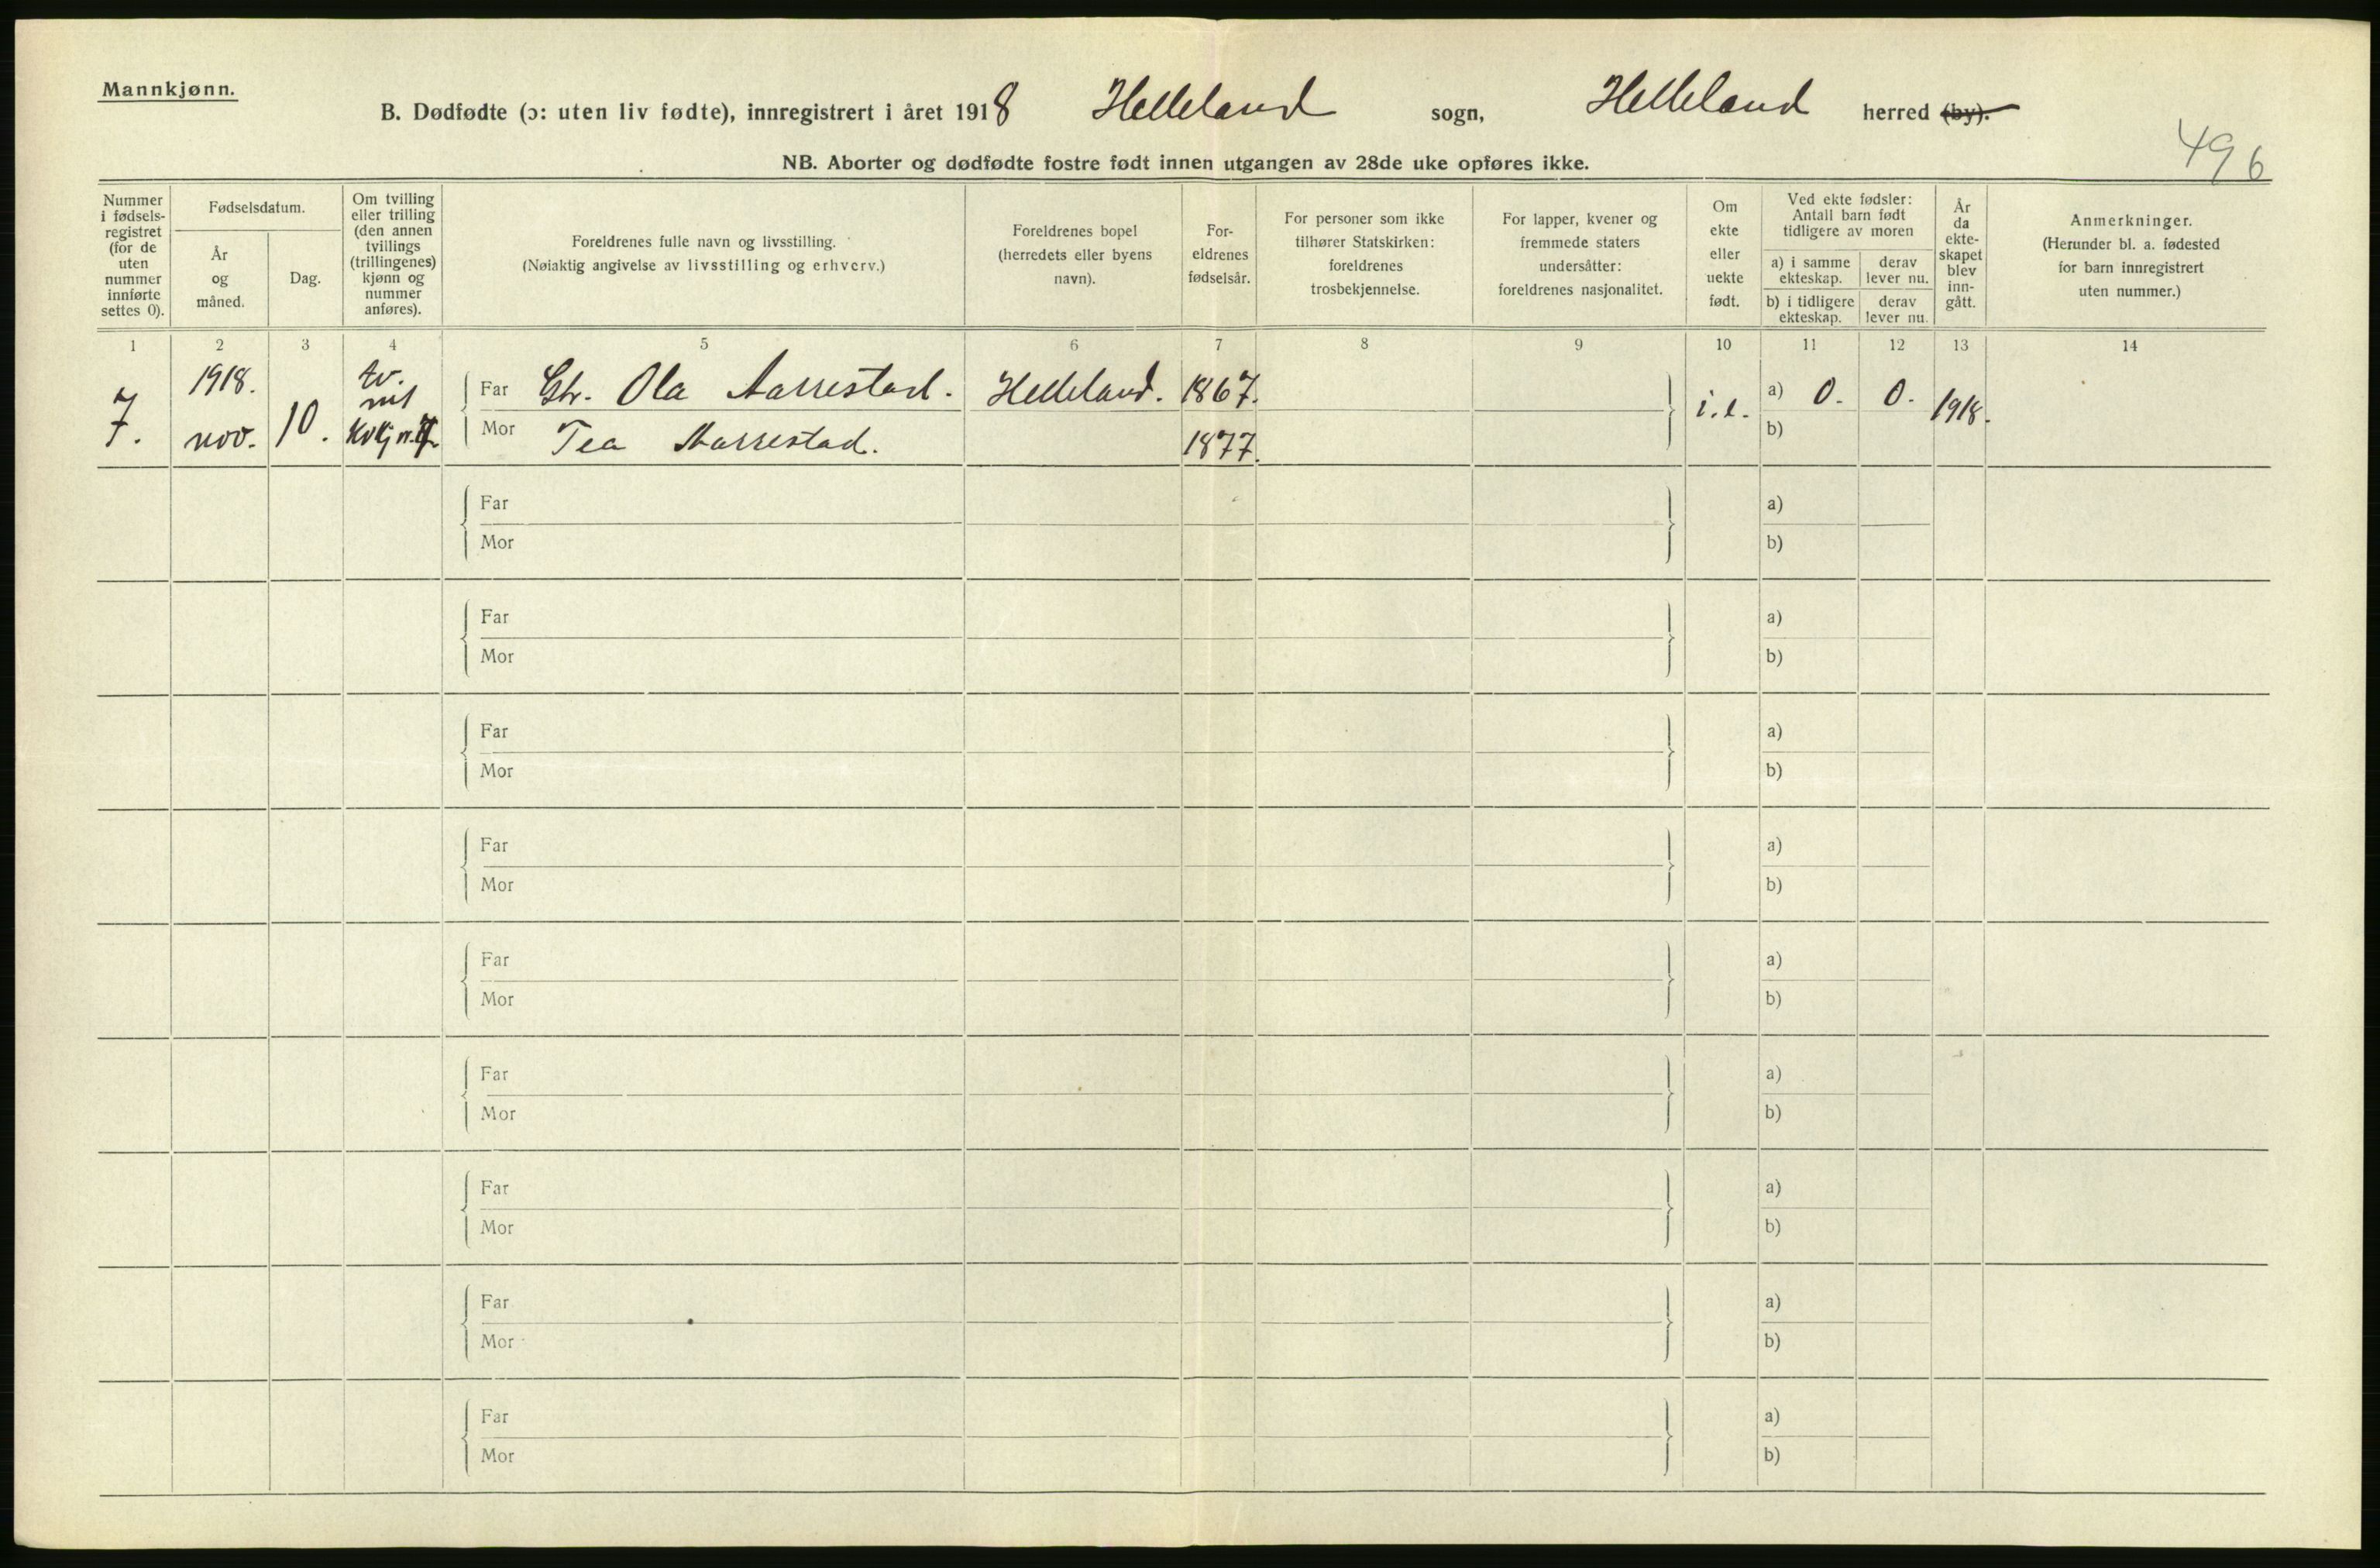 Mannkjønn.
B. Dødfødte (ɔ: uten liv fødte), innregistrert i året 1918 Helleland sogn, Helleland herred (by).
496
NB. Aborter og dødfødte fostre født innen utgangen av 28de uke opføres ikke.
Nummer i fødsels-registret (for de uten nummer innførte settes 0).
Fødselsdatum.
År og måned.
Dag.
Om tvilling eller trilling (den annen tvillings (trillingenes) kjønn og nummer anføres).
Foreldrenes fulle navn og livsstilling.
(Nøiaktig angivelse av livsstilling og erhverv.)
Foreldrenes bopel (herredets eller byens navn).
For-eldrenes fødselsår.
For personer som ikke tilhører Statskirken: foreldrenes trosbekjennelse.
For lapper, kvener og fremmede staters undersåtter: foreldrenes nasjonalitet.
Om ekte eller uekte født.
Ved ekte fødsler: Antall barn født tidligere av moren
a) i samme ekteskap.
derav lever nu.
b) i tidligere ekteskap.
derav lever nu.
År da ekte-skapet blev inn-gått.
Anmerkninger.
(Herunder bl. a. fødested for barn innregistrert uten nummer.)
1 2 3 4 5 6 7 8 9 10 11 12 13 14
7. 1918. nov. 10. tv. m/ kvkj n. 7
Far Gbr. Ola Aarrestad. Helleland. 1867. i.e. a) 0. 0. 1918.
Mor Tea Aarrestad. 1877. b)
Far a)
Mor b)
Far a)
Mor b)
Far a)
Mor b)
Far a)
Mor b)
Far a)
Mor b)
Far a)
Mor b)
Far a)
Mor b)
Far a)
Mor b)
Far a)
Mor b)